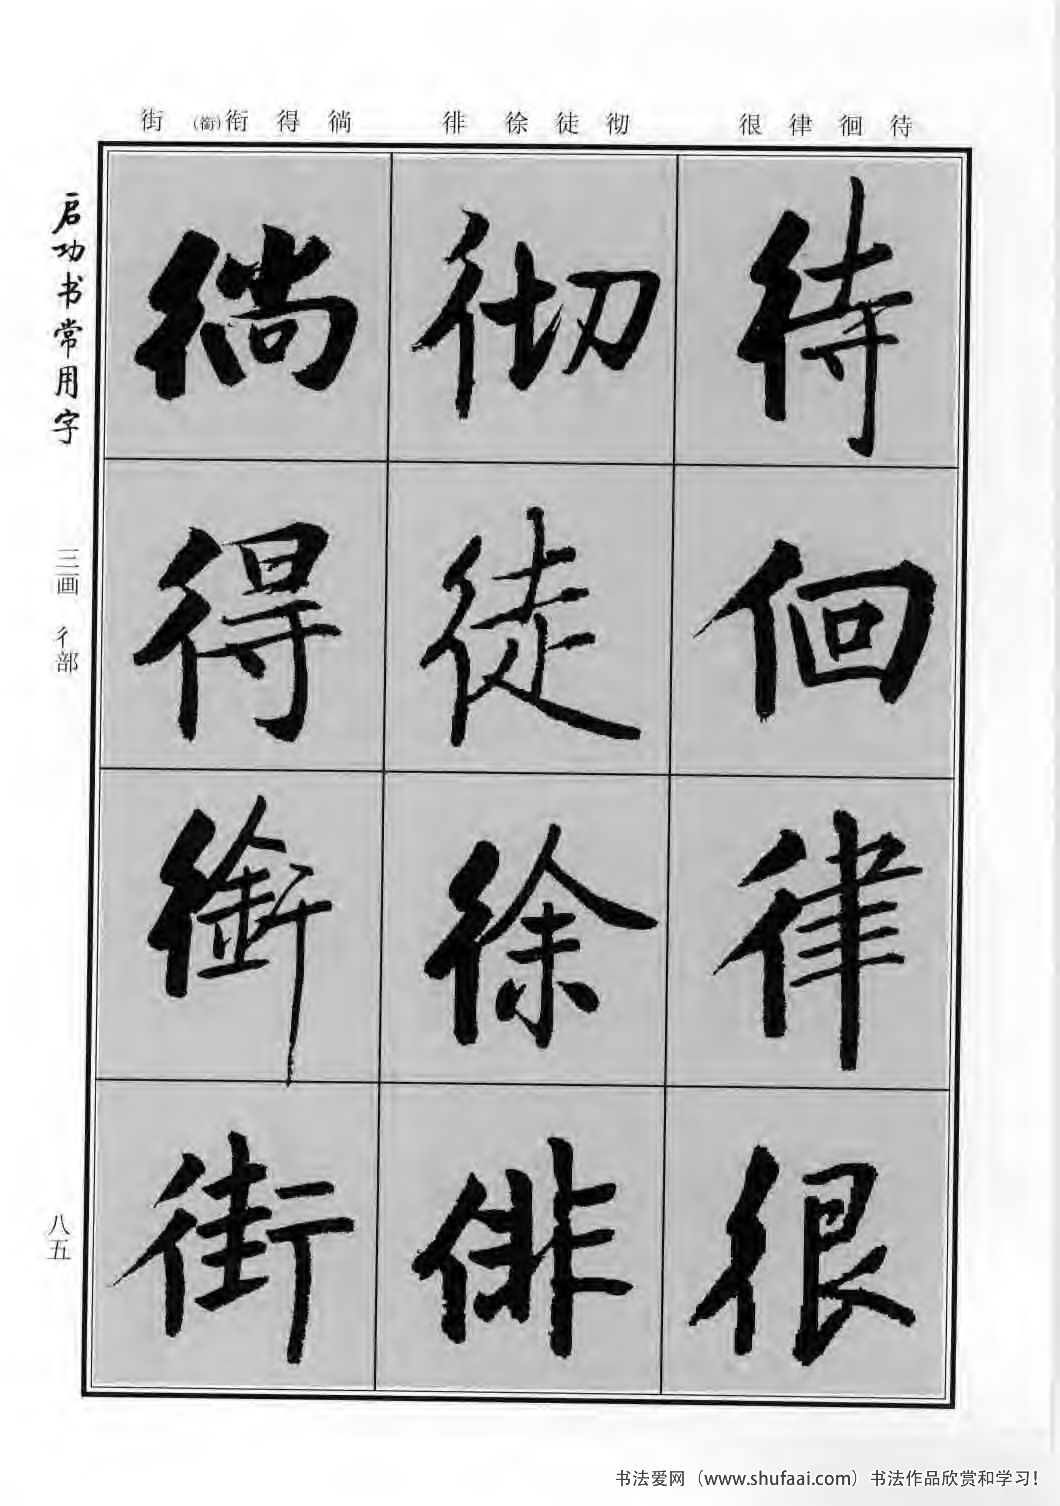 街 (銜)衔 得 徜 徘 徐 徒 彻 很 律 徊 待
启功书常用字
三画 彳部
八五
待
徊
律
很
彻
徒
徐
徘
徜
得
銜
街
书法爱网（www.shufaai.com）书法作品欣赏和学习！